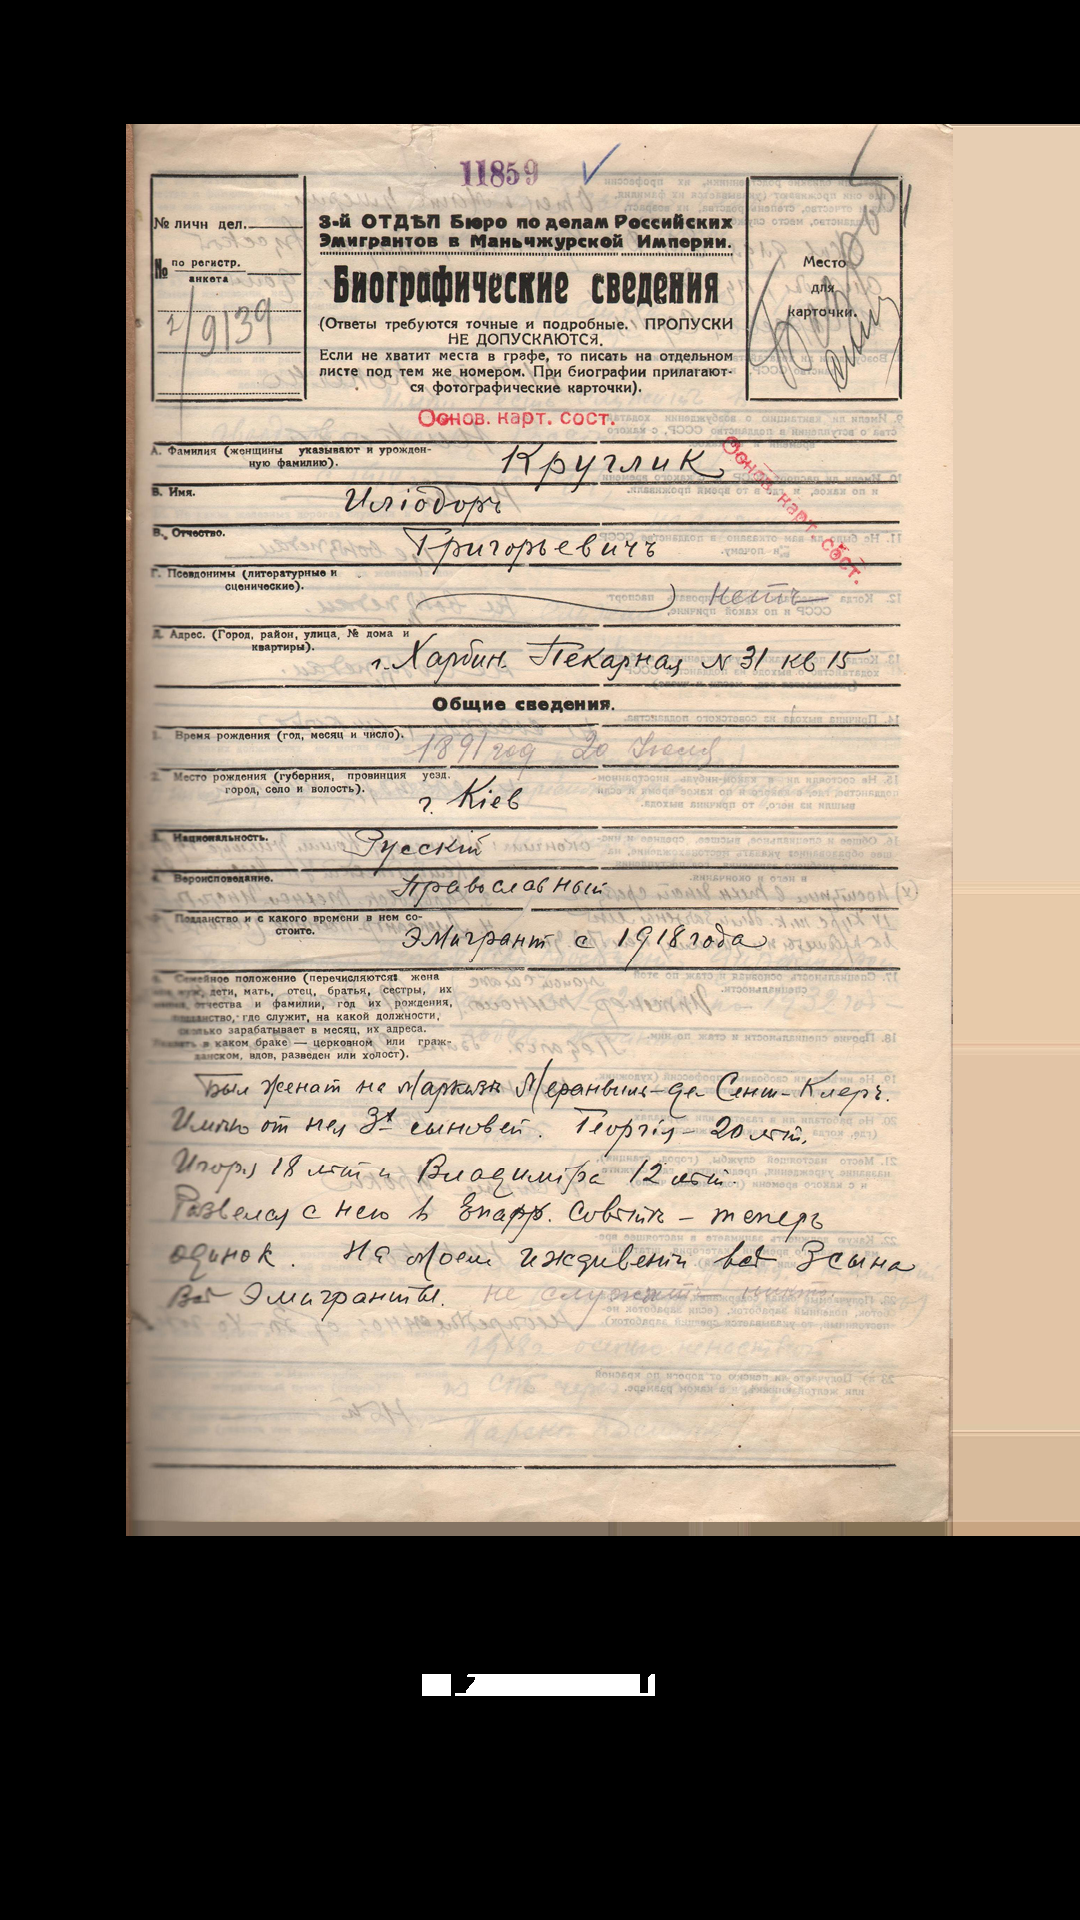 11859
№ личн дел.
№ по регистр.
анкета
2/9139
3-й ОТДѢЛ Бюро по делам Российских
Эмигрантов в Маньчжурской Империи.
Биографические сведения
(Ответы требуются точные и подробные. ПРОПУСКИ
НЕ ДОПУСКАЮТСЯ.
Если не хватит места в графе, то писать на отдельном
листе под тем же номером. При биографии прилагают-
ся фотографические карточки).
Место
для
карточки.
Основ. карт. сост.
Основ. карт. сост.
А. Фамилия (женщины указывают и урожден-
ную фамилию).
Круглик
В. Имя.
Иліодоръ
В. Отчество.
Григорьевичъ
Г. Псевдонимы (литературные и
сценические).
нетъ
Д. Адрес. (Город, район, улица, № дома и
квартиры).
г. Харбин. Пекарная N 31 кв 15
Общие сведения.
1. Время рождения (год, месяц и число).
1891 год 20 Іюля
2. Место рождения (губерния, провинция уезд.
город, село и волость).
г. Кіев
3. Национальность.
Русскій
4. Вероисповедание.
Православный
5. Подданство и с какого времени в нем со-
стоите.
Эмигрант с 1918 года
Семейное положение (перечисляются: жена
муж, дети, мать, отец, братья, сестры, их
отчества и фамилии, год их рождения,
подданство, где служит, на какой должности,
сколько зарабатывает в месяц, их адреса.
Указать в каком браке — церковном или граж-
данском, вдов, разведен или холост).
Был женат на Маркизѣ Меранвиль-де Сент-Клеръ.
Имѣю от нея 3х сыновей. Георгія - 20 лѣт,
Игоря 18 лѣт и Владиміра 12 лѣт.
Развелся с нею в Епарх. Совѣтѣ - теперь
одинок. На моем иждивеніи всѣ 3 сына
Всѣ Эмигранты. не служатъ